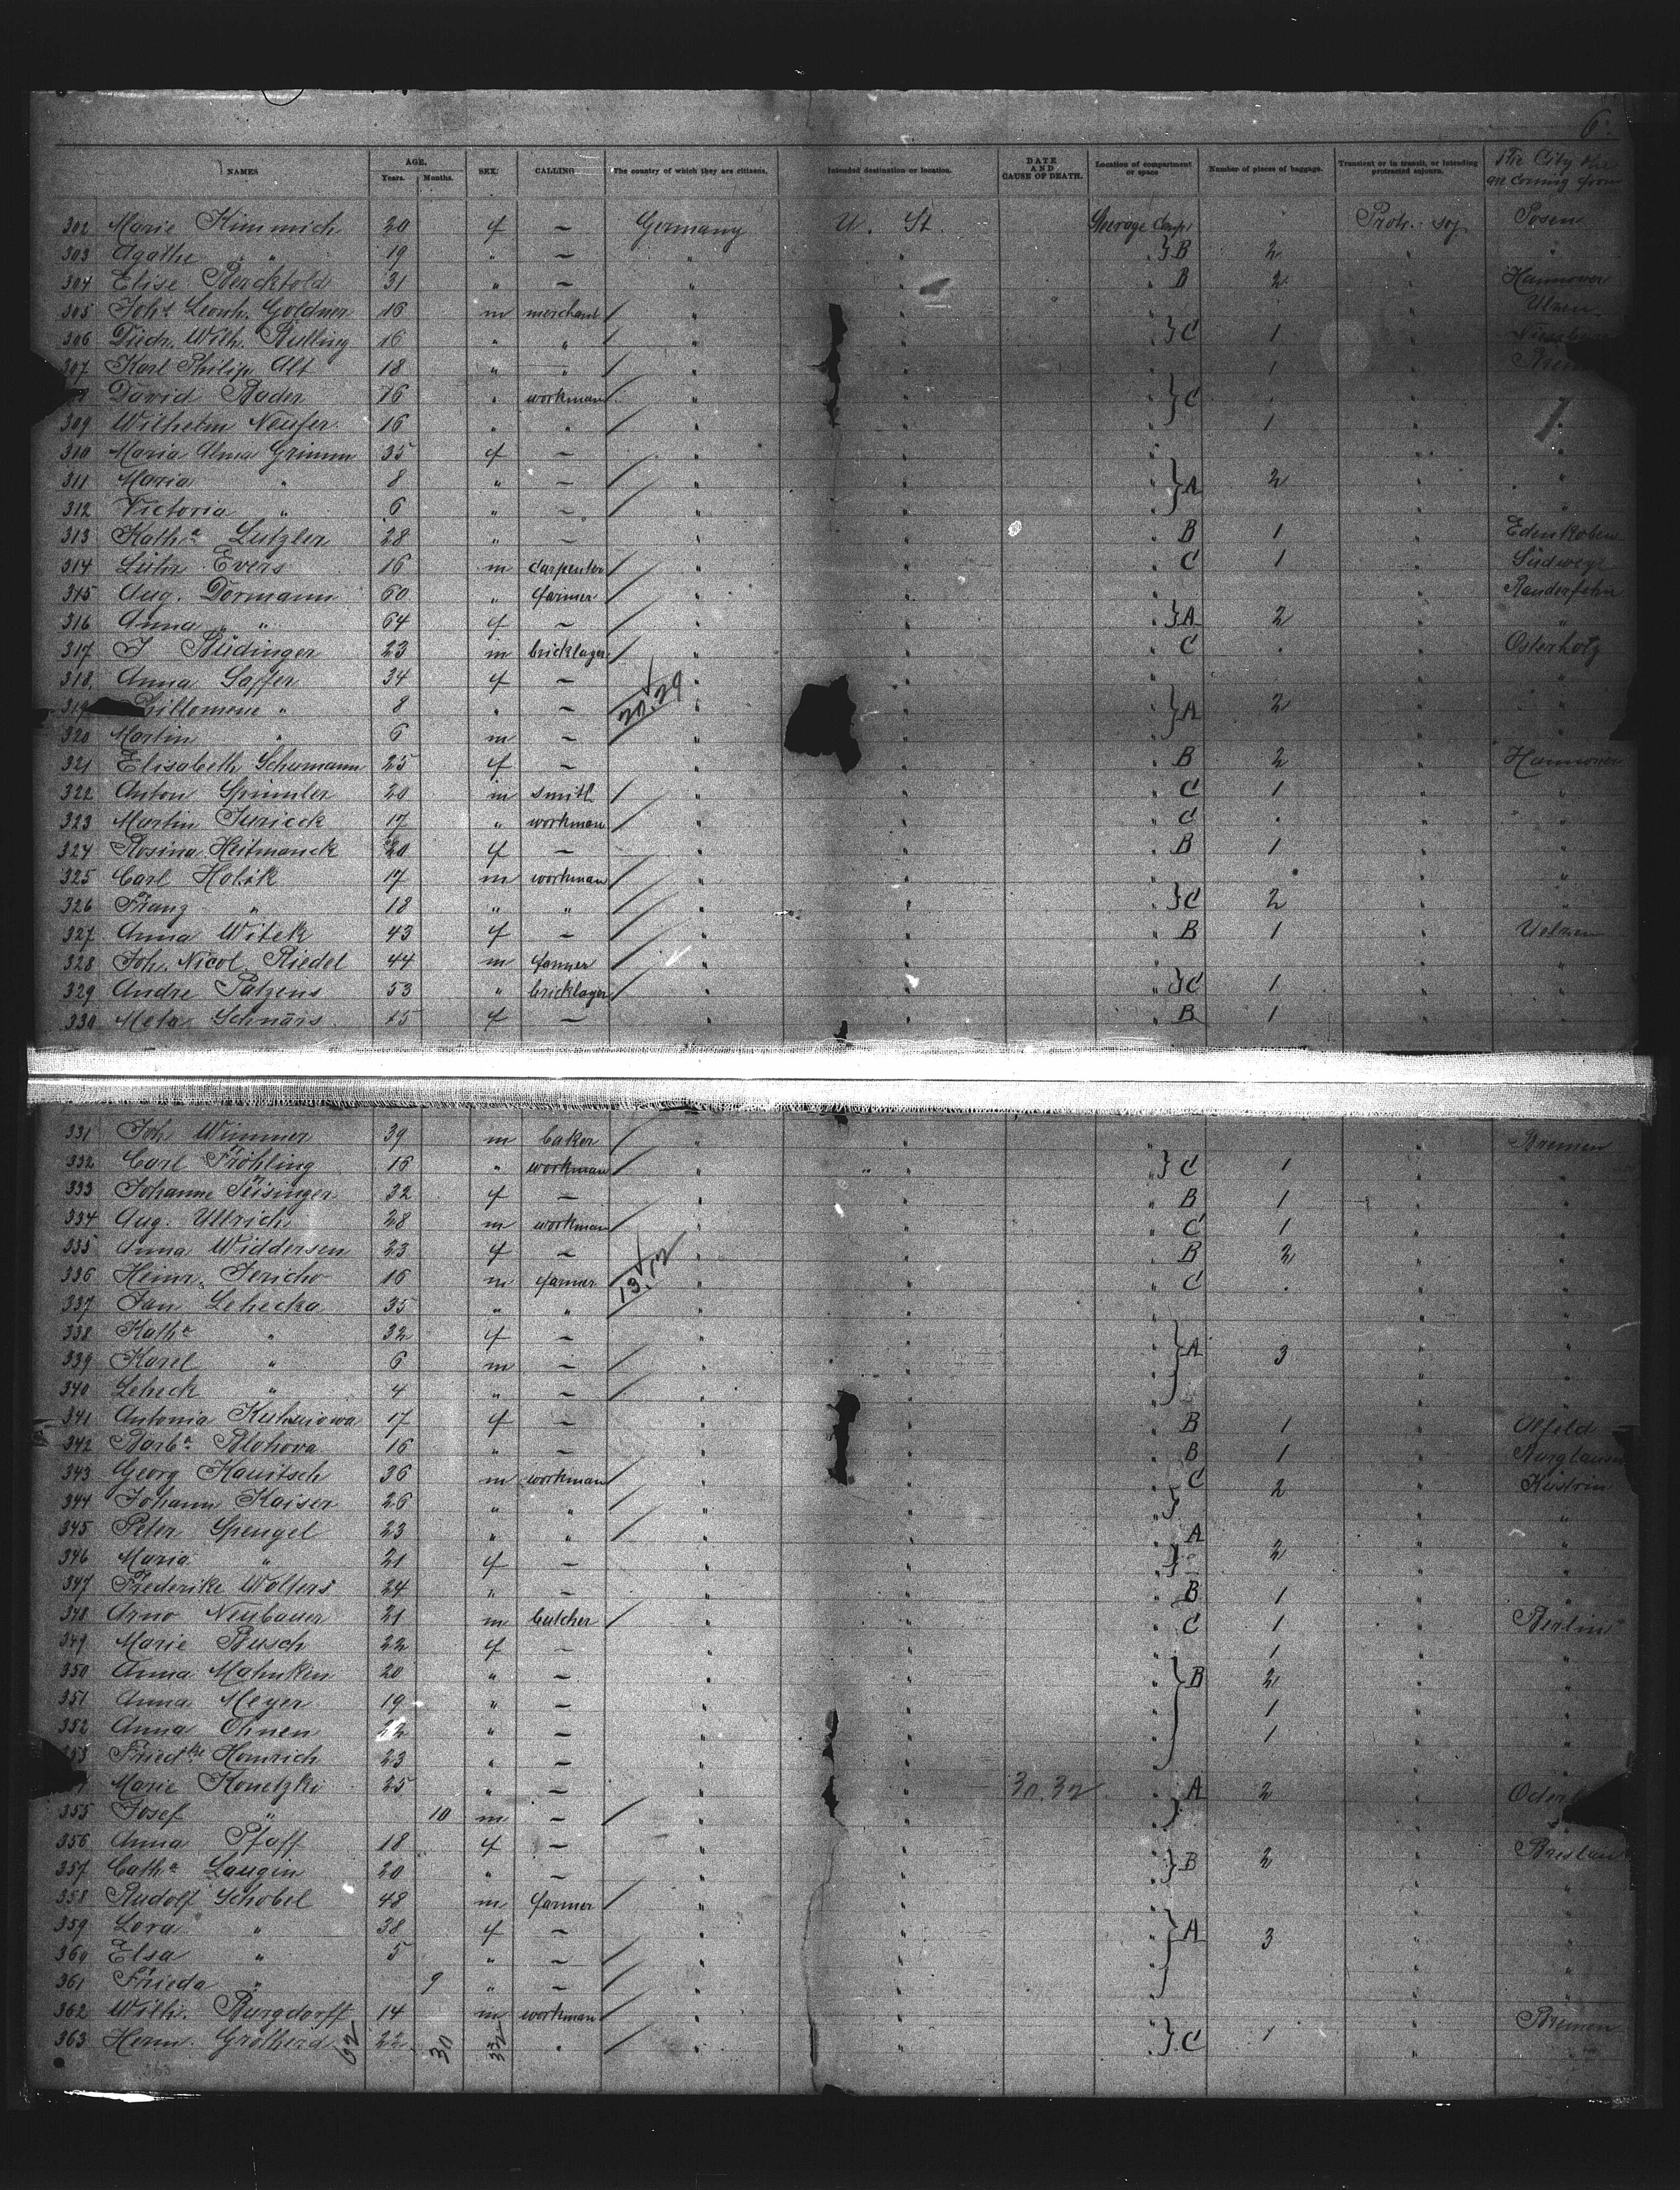 6.
NAMES AGE. Years. Months. SEX. CALLING The country of which they are citizens. Intended destination or location. DATE AND CAUSE OF DEATH. Location of compartment or space Number of pieces of baggage. Transient or in transit, or intending protracted sojourn. The City they are coming from
302 Marie Kimmich 20 f — Germany U. St. Steerage Compt Protr. soj. Posen
303 Agathe " 19 " — " " " } B 2 " "
304 Elise Bercktold 31 " — " " " B 2 " Hannover
305 Joh. Leonh. Goldner 16 m merchant " " " " Ulzen
306 Diedr. Wilh. Rulling 16 " " " " " } C 1 "
307 Karl Philip Alt 18 " " " " " 1 "
David Bader 16 " workman " " " } C "
309 Wilhelm Neufer 16 " " " " " 1 " "
310 Maria Alma Grimm 35 f — " " " " "
311 Maria " 8 " — " " " } A 2 " "
312 Victoria " 6 " — " " " " "
313 Katha Lutzler 28 " — " " " B 1 " Edenkoben
314 Evers 16 m carpenter " " " C 1 " Südweye
315 Aug. Dormann 60 " farmer " " " " Rauderfehn
316 Anna " 64 f — " " " } A 2 " "
317 J Büdinger 23 m bricklayer " " " C " Osterholz
318 Anna Saffer 34 f — " " " " "
319 " 8 " — 20.29 " " " } A 2 " "
320 Martin " 6 m — " " " " "
321 Elisabeth Schumann 25 f — " " " B 2 " Hannover
322 Anton Spimler 20 m smith " " " C 1 " "
323 Martin Juricek 17 " workman " " " C " "
324 Rosina Heitmanek 20 f — " " " B 1 " "
325 Carl Holik 17 m workman " " " " "
326 Franz " 18 " " " " " } C 2 " "
327 Anna Witek 43 f — " " " B 1 " Uelzen
328 Joh. Nicol. Riedel 44 m farmer " " " " "
329 Andre Patzens 53 " bricklayer " " " } C 1 " "
330 Meta Schnärs 15 f — " " " B 1 " "
331 Joh Wimmer 39 m baker " " " " Bremen
332 Carl Fröhling 16 " workman " " " } C 1 " "
333 Johanne 32 f — " " " B 1 " "
334 Aug. Ullrich 28 m workman " " " C 1 " "
335 Anna Widdersen 23 f — " " " B 2 " "
336 Heinr. Jericho 16 m farmer 13.12 " " " C " "
337 Jan Lehecka 35 " " " " " " "
338 Katha " 32 f — " " " } A 3 " "
339 Karel " 6 m — " " " " "
340 Leheck " 4 " — " " " " "
341 Antonia 17 f — " " " B 1 " Alfeld
342 Barba Blohova 16 " — " " " B 1 "
343 Georg Kauitsch 36 m workman " " " C 2 " Küstrin
344 Johann Kaiser 26 " " " " " } " "
345 Peter Spengel 23 " " " " " A " "
346 Maria " 21 f — " " " } 2 " "
347 Frederike Wolters 24 " — " " " B 1 " "
348 Arno Neubauer 21 m butcher " " " C 1 " Berlin
349 Marie Busch 22 f — " " " 1 " "
350 Anna Mahnken 20 " — " " " } B 2 " "
351 Anna Meyer 19 " — " " " 1 " "
352 Anna Ohnen 22 " — " " " 1 " "
353 Friedke Homrich 23 " — " " " " "
Marie Konetzki 25 " — " " 30.32 " A 2 "
355 Josef " 10 m — " " " } " "
356 Anna Pfaff 18 f — " " " } B 2 " Breslau
357 Catha Laugin 20 " — " " " " "
358 Rudolf Schobel 48 m farmer " " " " "
359 Lora " 38 f — " " " } A 3 " "
360 Elsa " 5 " — " " " " "
361 Frieda " 9 " — " " " " "
362 Wilh. Burgdorff 14 m workman " " " " Bremen
363 Herm. Grotherd 22 " " " " } C 1 " "
62 30 32
363